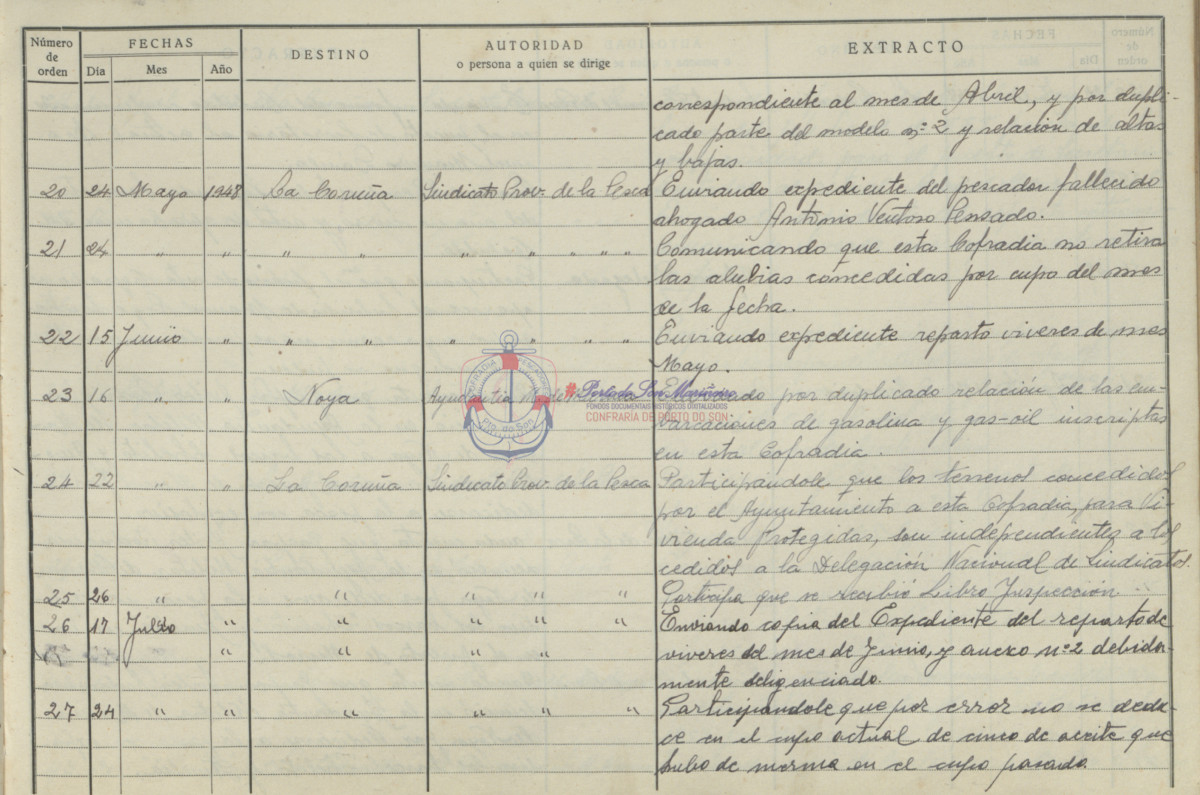 Número de orden
FECHAS
Dia Mes Año
DESTINO
AUTORIDAD
o persona a quien se dirige
EXTRACTO
correspondiente al mes de Abril, y por dupli-
cado parte del modelo nº 2 y relación de altas
y bajas.
20 24 Mayo 1948 La Coruña Sindicato Prov. de la Pesca Enviando expediente del pescador fallecido
ahogado Antonio Ventoso Pensado.
21 24 " " " " " " " " " Comunicando que esta Cofradia no retira
las alubias concedidas por cupo del mes
de la fecha.
22 15 Junio " " " " " " " Enviando expediente reparto viveres de mes
Mayo.
23 16 " " Noya Ayudantía por duplicado relación de las em-
barcaciones de gasolina y gas-oil inscriptas
en esta Cofradia.
24 22 " " La Coruña Sindicato Prov. de la Pesca Participandole que los terrenos concedidos
por el Ayuntamiento a esta Cofradia, para Vi-
vienda Protegidas, son independientes a los
cedidos a la Delegación Nacional de Sindicatos.
25 26 " " " " " Participa que se recibió Libro Inspección
26 17 Julio " " " " " Enviando copia del Expediente del reparto de
" " " " viveres del mes de Junio, y anexo nº 2 debida-
mente deligenciado.
27 24 " " " " " " Participandole que por error no se dedu-
ce en el cupo actual de cinco de aceite que
hubo de merma en el cupo pasado.
COFRADIA PESCADORES
Pto. do Son
#PortodoSonMariñeiro
FONDOS DOCUMENTAIS HISTÓRICOS DIGITALIZADOS
CONFRARÍA DE PORTO DO SON